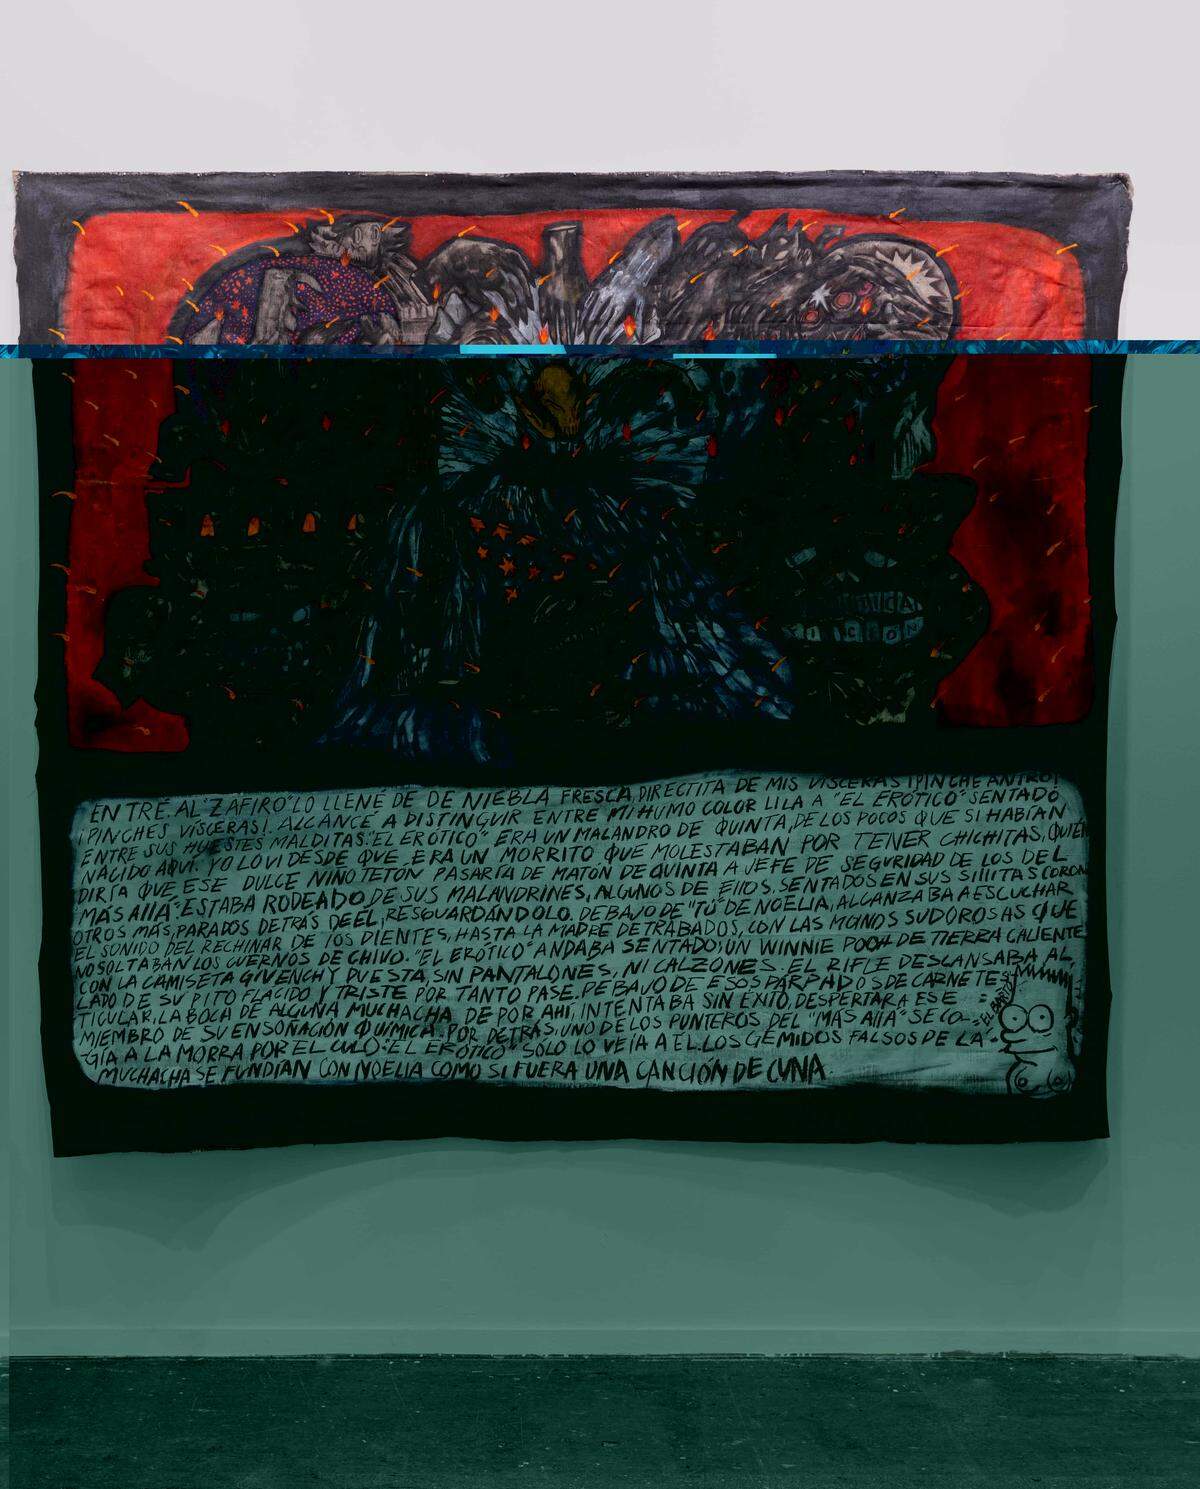 TICA
FICCIÓN
ENTRÉ AL "ZAFIRO" LO LLENÉ DE DE NIEBLA FRESCA, DIRECTITA DE MIS VÍSCERAS ¡PINCHE ANTRO!
¡PINCHES VÍSCERAS!. ALCANCÉ A DISTINGUIR ENTRE MI HUMO COLOR LILA A "EL ERÓTICO" SENTADO
ENTRE SUS HUESTES MALDITAS. "EL ERÓTICO" ERA UN MALANDRO DE QUINTA, DE LOS POCOS QUE SI HABÍAN
NACIDO AQUÍ. YO LO VI DESDE QUE ERA UN MORRITO QUE MOLESTABAN POR TENER CHICHITAS, QUIÉN
DIRÍA QUE ESE DULCE NIÑO TETÓN PASARÍA DE MATÓN DE QUINTA A JEFE DE SEGURIDAD DE LOS DEL
"MÁS AllÁ". ESTABA RODEADO DE SUS MALANDRINES, ALGUNOS DE EllOS, SENTADOS EN SUS SIllITAS CORONA
OTROS MÁS, PARADOS DETRÁS DE ÉL, RESGUARDÁNDOLO. DEBAJO DE "TÚ" DE NOELIA, ALCANZABA A ESCUCHAR
EL SONIDO DEL RECHINAR DE lOS DIENTES, HASTA LA MADRE DE TRABADOS, CON LAS MANOS SUDOROSAS QUE
NO SOLTABAN LOS CUERNOS DE CHIVO. "EL ERÓTICO" ANDABA SENTADO; UN WINNIE POOH DE TIERRA CALIENTE
CON LA CAMISETA GIVENCHY PUESTA, SIN PANTALONES, NI CALZONES. EL RIFLE DESCANSABA AL
LADO DE SU PITO FLÁCIDO Y TRISTE POR TANTO PASE. DEBAJO DE ESOS PÁRPADOS DE CARNE TE-
TICULAR, LA BOCA DE ALGUNA MUCHACHA DE POR AHI, INTENTABA SIN EXITO, DESPERTAR A ESE
MIEMBRO DE SU ENSOÑACIÓN QUÍMICA. POR DETRÁS, UNO DE LOS PUNTEROS DEL "MÁS AllÁ" SE CO-
GÍA A LA MORRA POR EL CULO. "EL ERÓTICO" SÓLO LO VEÍA A ÉL. LOS GEMIDOS FALSOS DE LA
MUCHACHA SE FUNDÍAN CON NOELIA COMO SI FUERA UNA CANCIÓN DE CUNA.